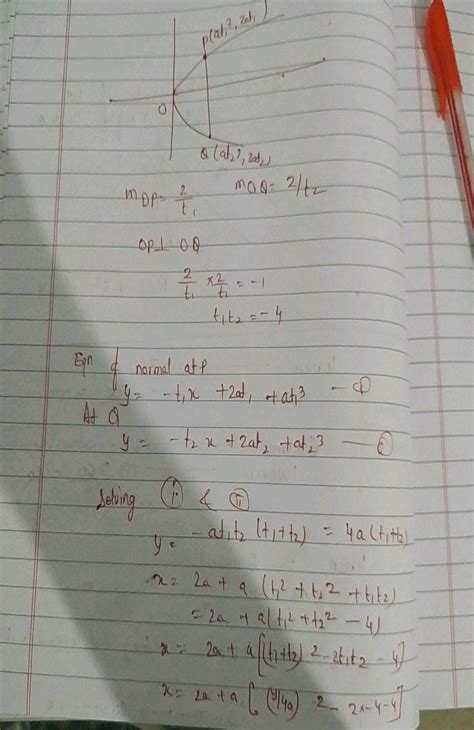 P(at₁², 2at₁)
O
Q (at₂², 2at₂)
m_OP = 2/t₁ m_OQ = 2/t₂
OP ⊥ OQ
2/t₁ × 2/t₁ = -1
t₁t₂ = -4
Eqn of normal at P
y = -t₁x + 2at₁ + at₁³ — ①
At Q
y = -t₂x + 2at₂ + at₂³ — ②
Solving (i) & (ii)
y = -at₁t₂ (t₁+t₂) = 4a(t₁+t₂)
x = 2a + a (t₁² + t₂² + t₁t₂)
= 2a + a(t₁² + t₂² - 4)
x = 2a + a[(t₁+t₂) 2 - 2t₁t₂ - 4]
x = 2a + a [(y/4a) 2 - 2x-4-4]